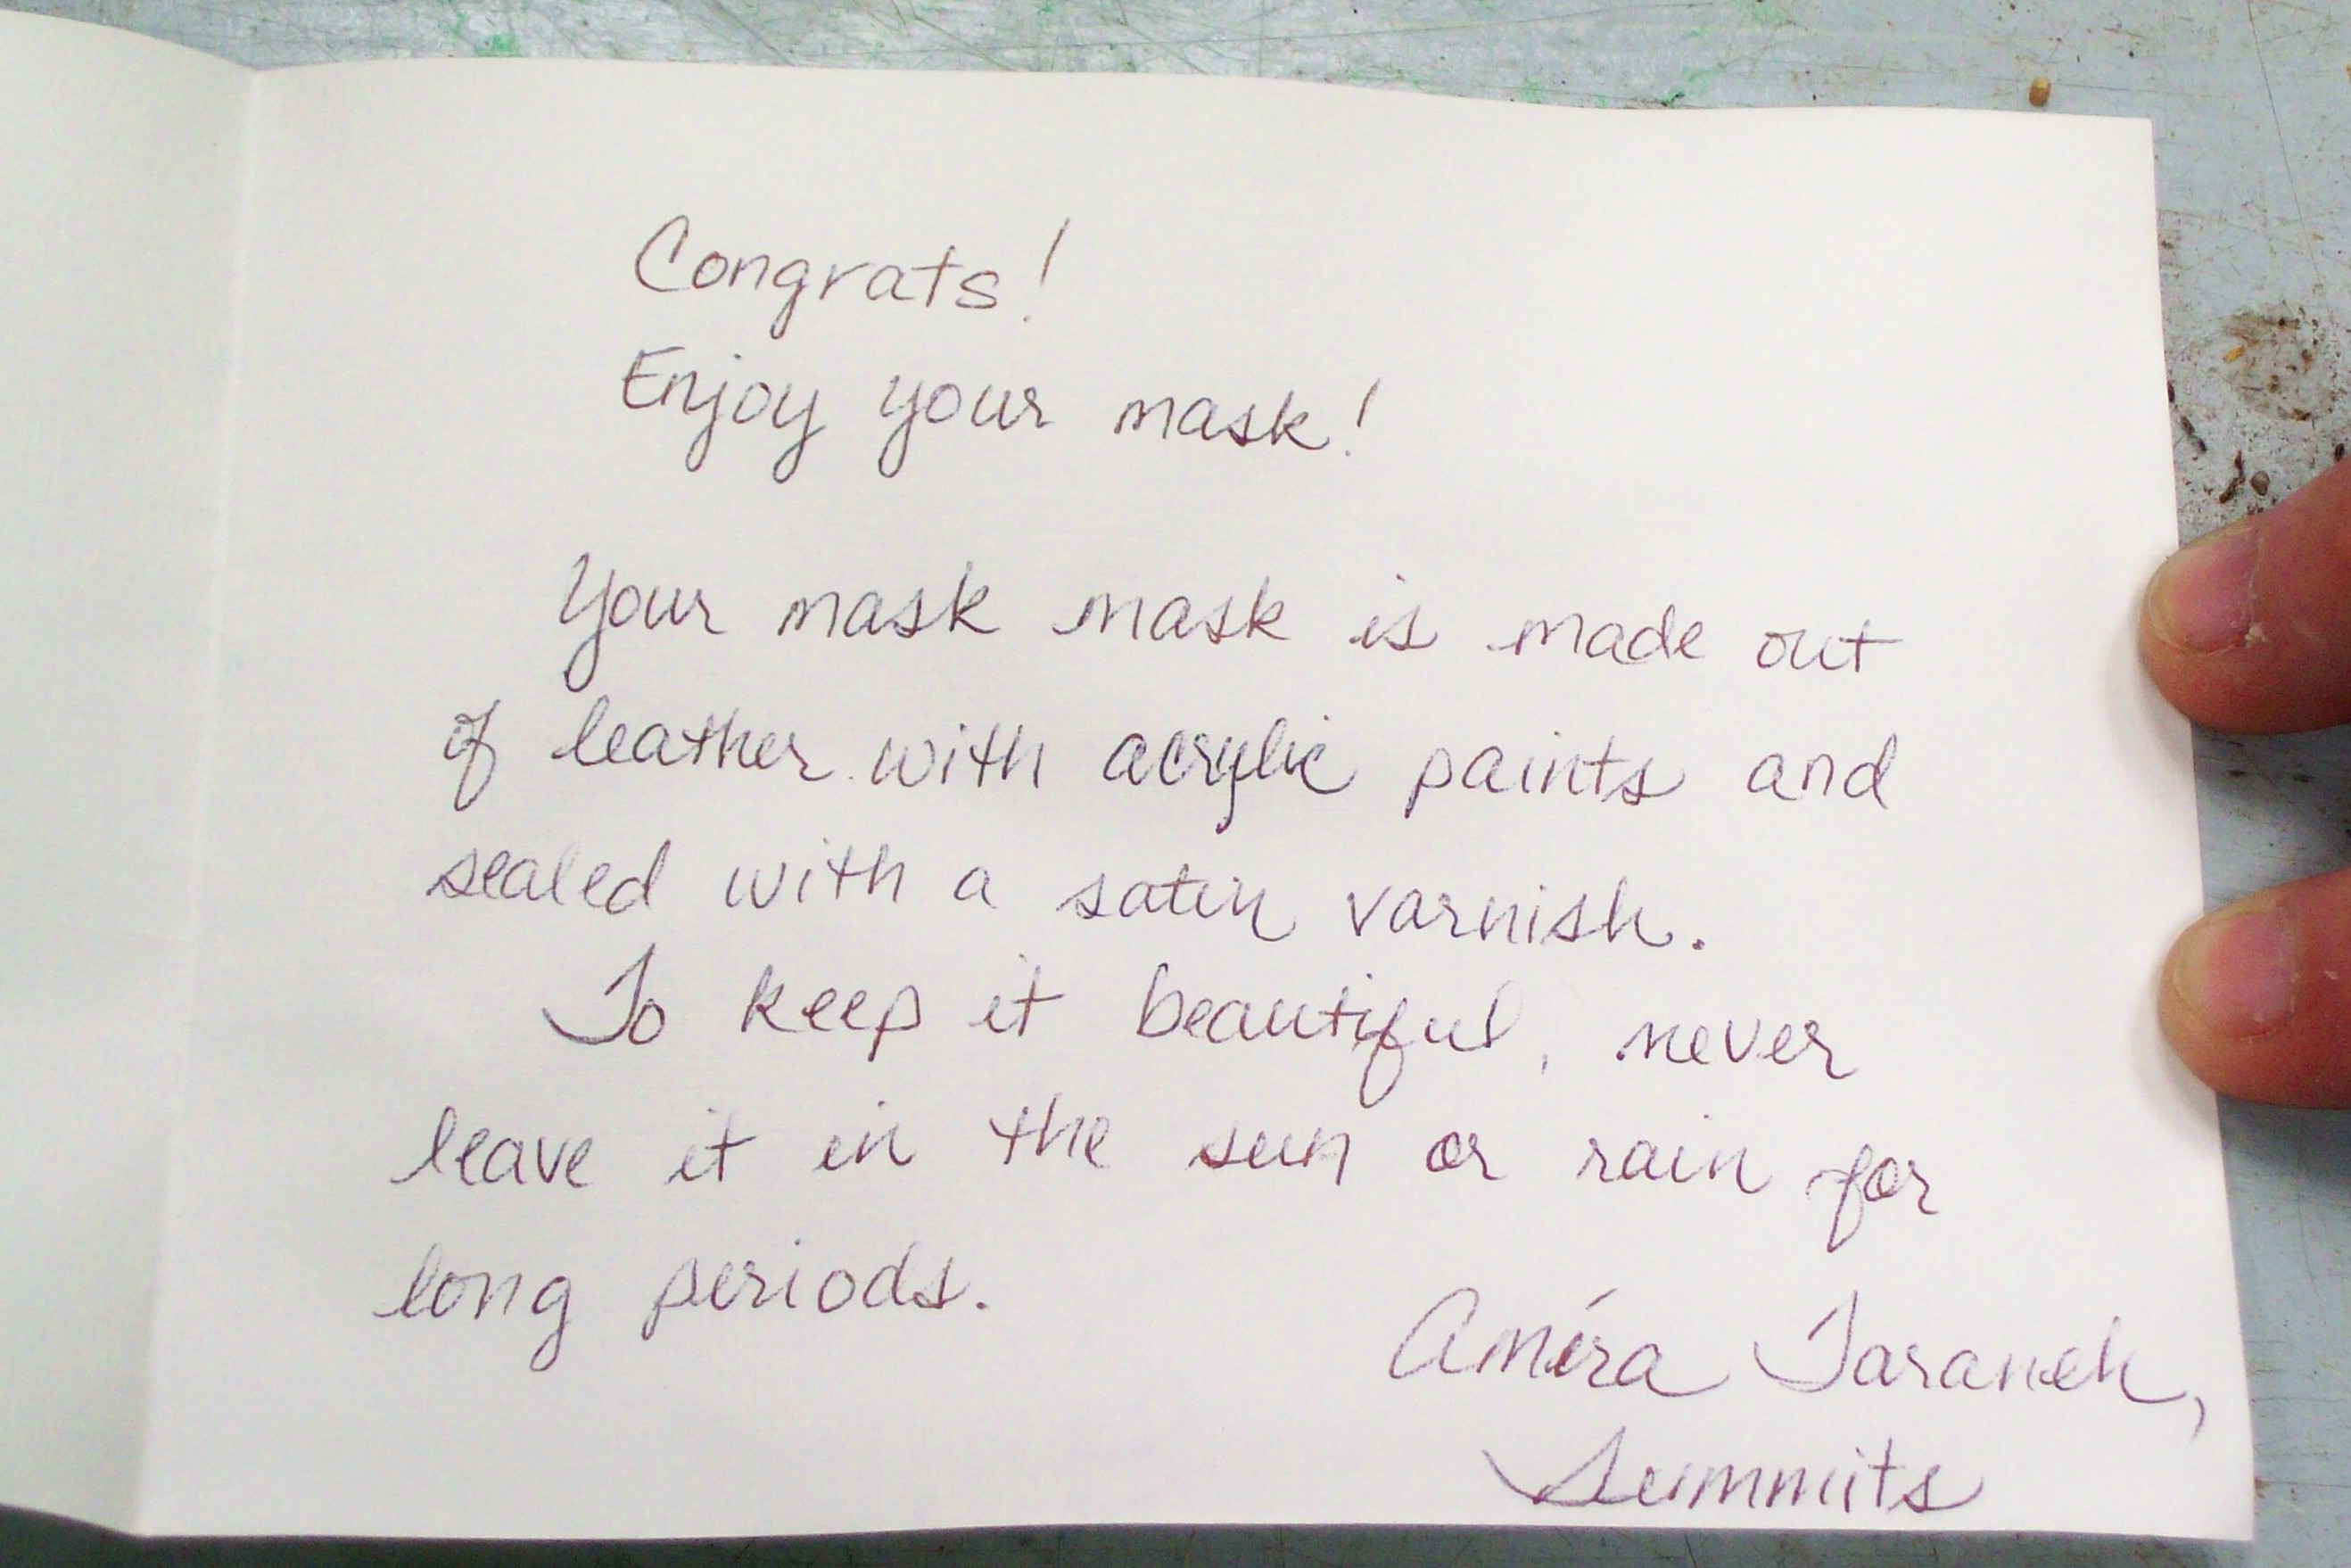 Congrats!
Enjoy your mask!
Your mask mask is made out
of leather with acrylic paints and
sealed with a satin varnish.
To keep it beautiful, never
leave it in the sun or rain for
long periods.
Améra Taraneh,
Summits